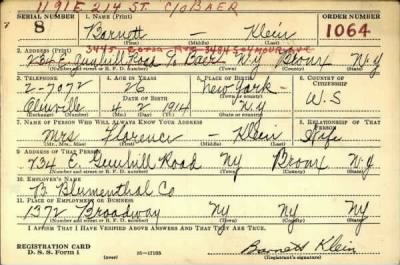 1191 E 214 ST. C/o BAER
SERIAL NUMBER 1. NAME (Print) ORDER NUMBER
8 Barnett — Klein 1064
(First) (Middle) (Last)
3. ADDRESS (Print)
234 E. Gunhill Road c/o Baer N.Y Bronx N.Y
(Number and street or R. F. D. number) (Town) (County) (State)
2. TELEPHONE 4. AGE IN YEARS 5. PLACE OF BIRTH 6. COUNTRY OF CITIZENSHIP
2-7072 26 New York U.S
DATE OF BIRTH (Town or county)
Olinville 4 2 1914 N.Y
(Exchange) (No.) (Mo.) (Day) (Yr.) (State or country)
7. NAME OF PERSON WHO WILL ALWAYS KNOW YOUR ADDRESS 8. RELATIONSHIP OF THAT PERSON
Mrs Florence — Klein Wife
(Mr., Mrs., Miss) (First) (Middle) (Last)
9. ADDRESS OF THAT PERSON
234 E. Gunhill Road NY Bronx N.Y
(Number and street or R. F. D. number) (Town) (County) (State)
10. EMPLOYER'S NAME
B. Blumenthal Co
11. PLACE OF EMPLOYMENT OR BUSINESS
1372 Broadway NY NY
(Number and street or R. F. D. number) (Town) (County) (State)
I AFFIRM THAT I HAVE VERIFIED ABOVE ANSWERS AND THAT THEY ARE TRUE.
REGISTRATION CARD
D. S. S. Form 1 (over) 16—17105 Barnett Klein
(Registrant's signature)